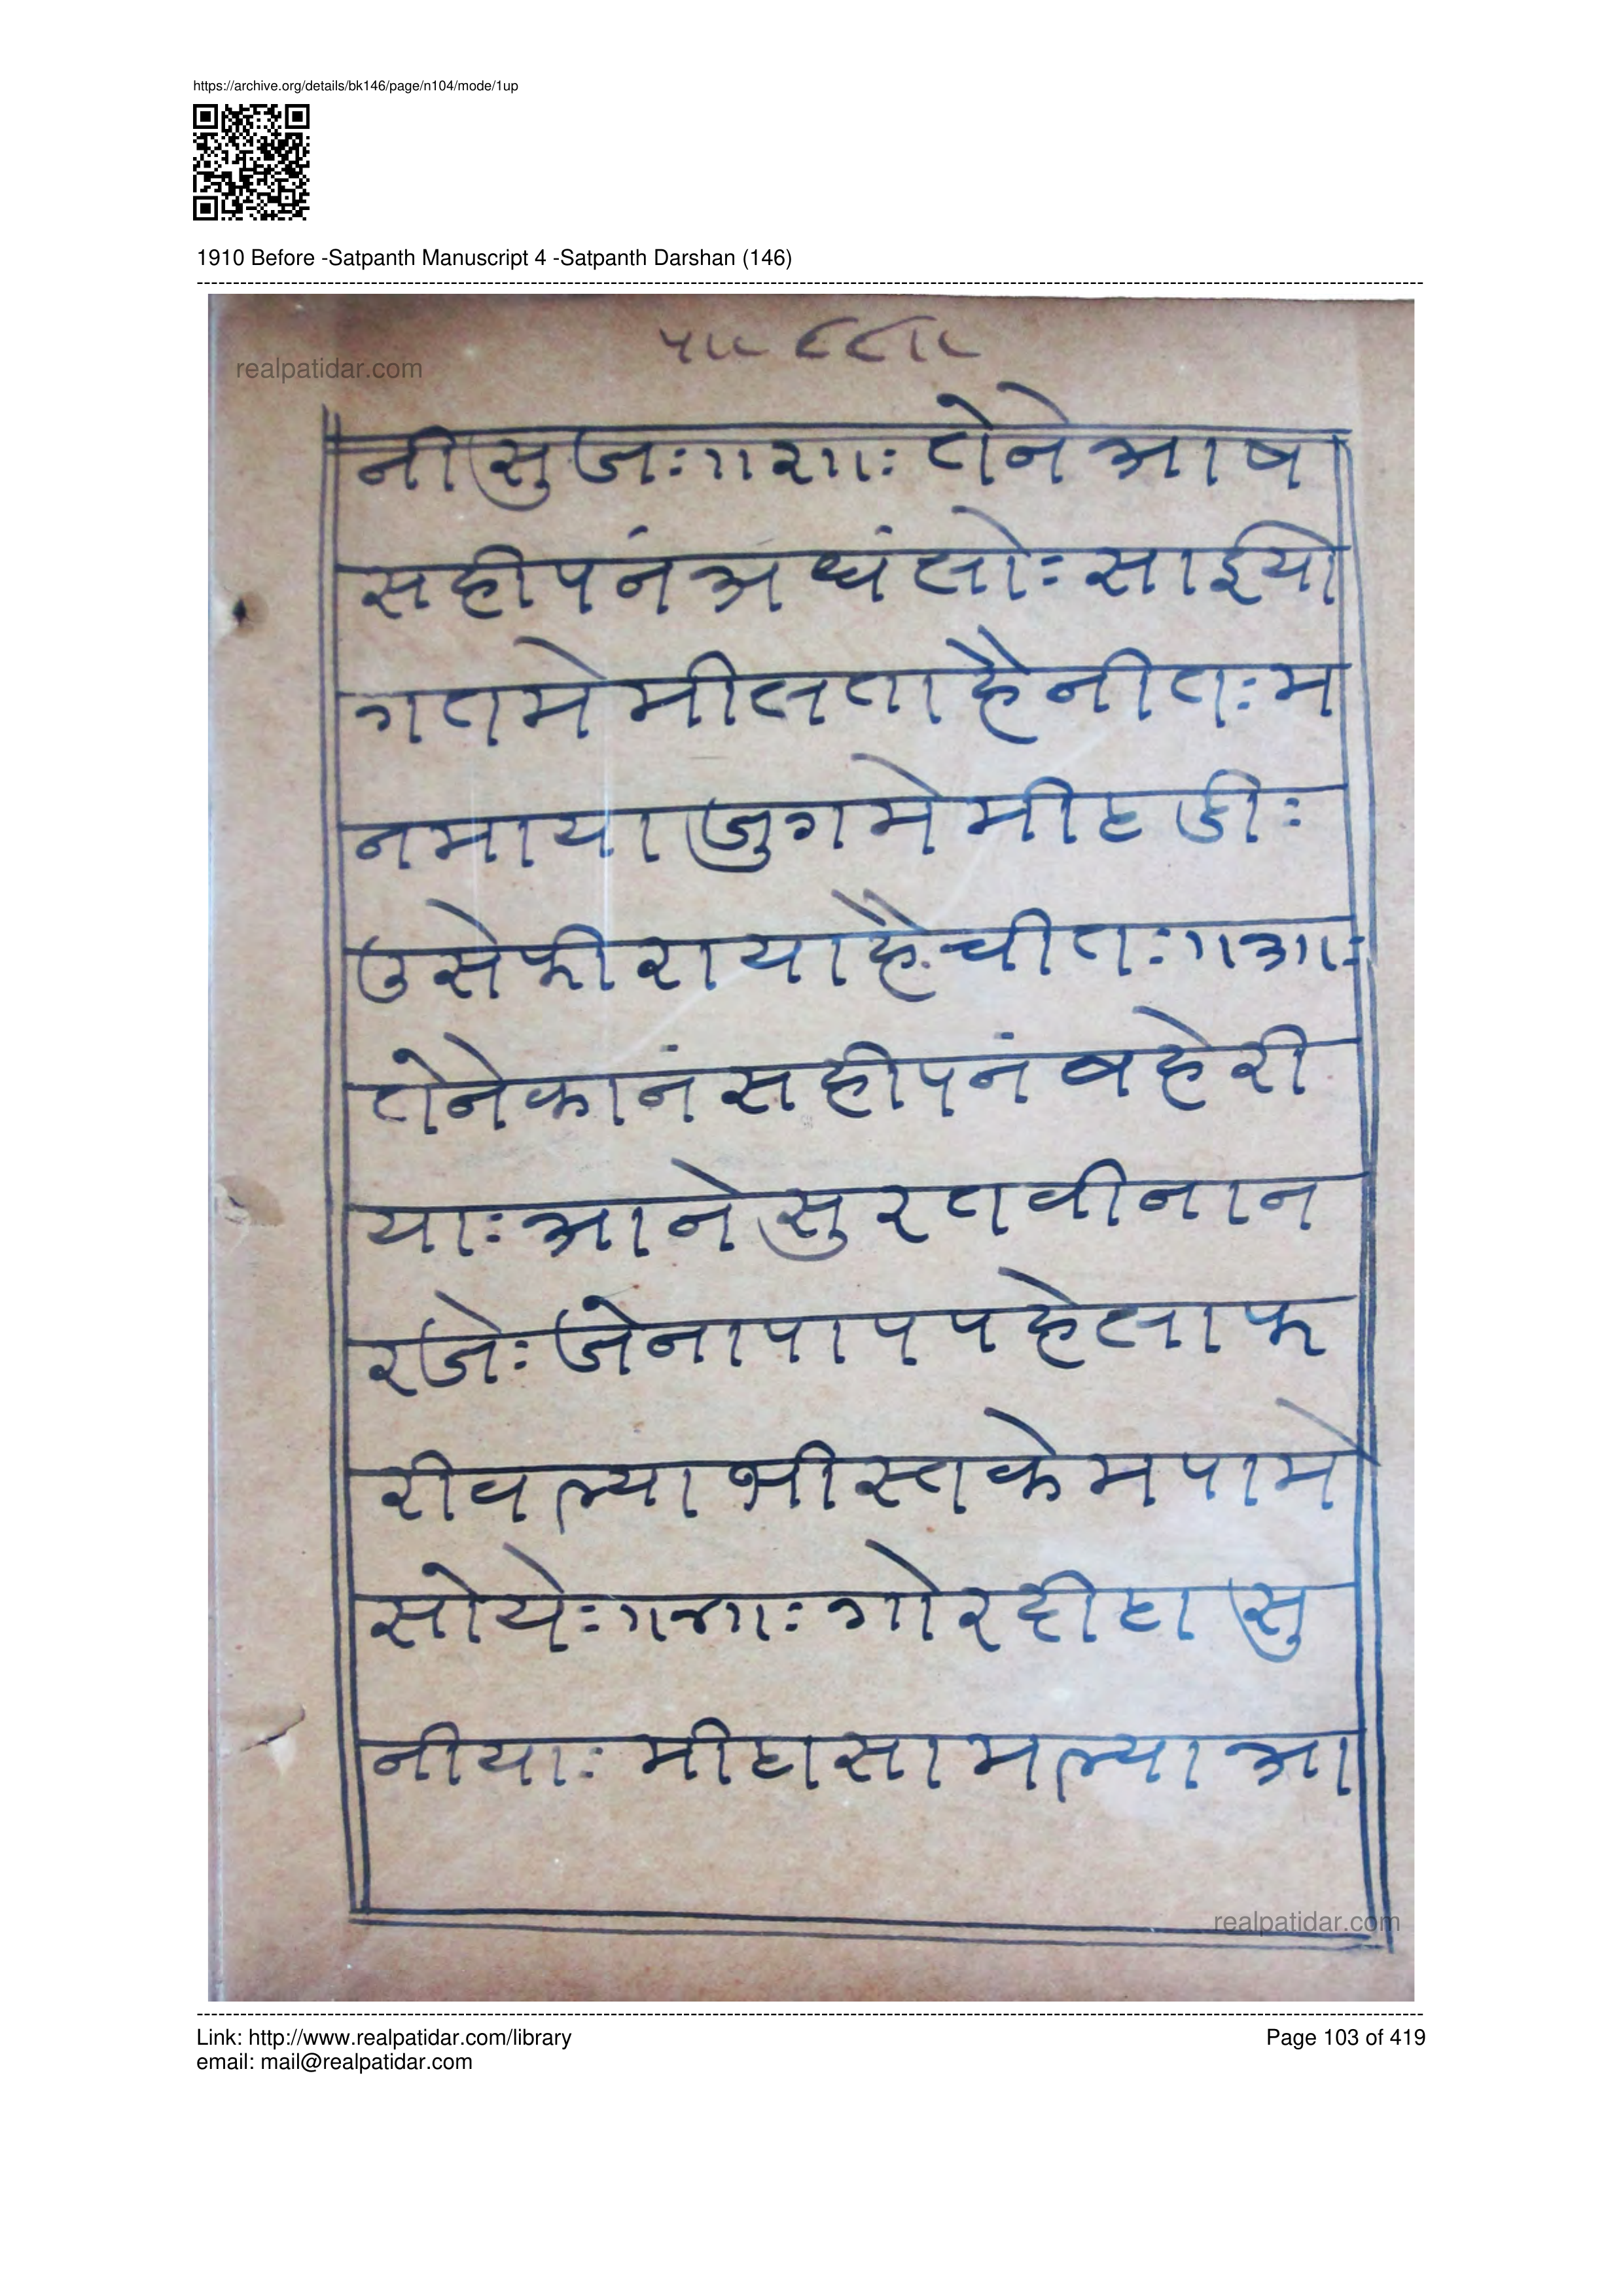 https://archive.org/details/bk146/page/n104/mode/1up
1910 Before -Satpanth Manuscript 4 -Satpanth Darshan (146)
realpatidar.com
नीसुजः॥२॥ः तेने आष
सहीपनं अधंलोः साईयो
गतमे मीलताहै नीतः म
नमाया जुगमे मीहडीः
उसेफीरायाहै चीतः॥३॥ः
तेनेकानं सहीपनं बहेरी
याः आने सुरतवीना न
रजेः जेनापाप पहेलाफ
रीवल्या भीस्त केम पामे
सोयेः॥४॥ः गोरहीहा सु
नीयाः मीहासामल्या आ
realpatidar.com
Link: http://www.realpatidar.com/library
Page 103 of 419
email: mail@realpatidar.com